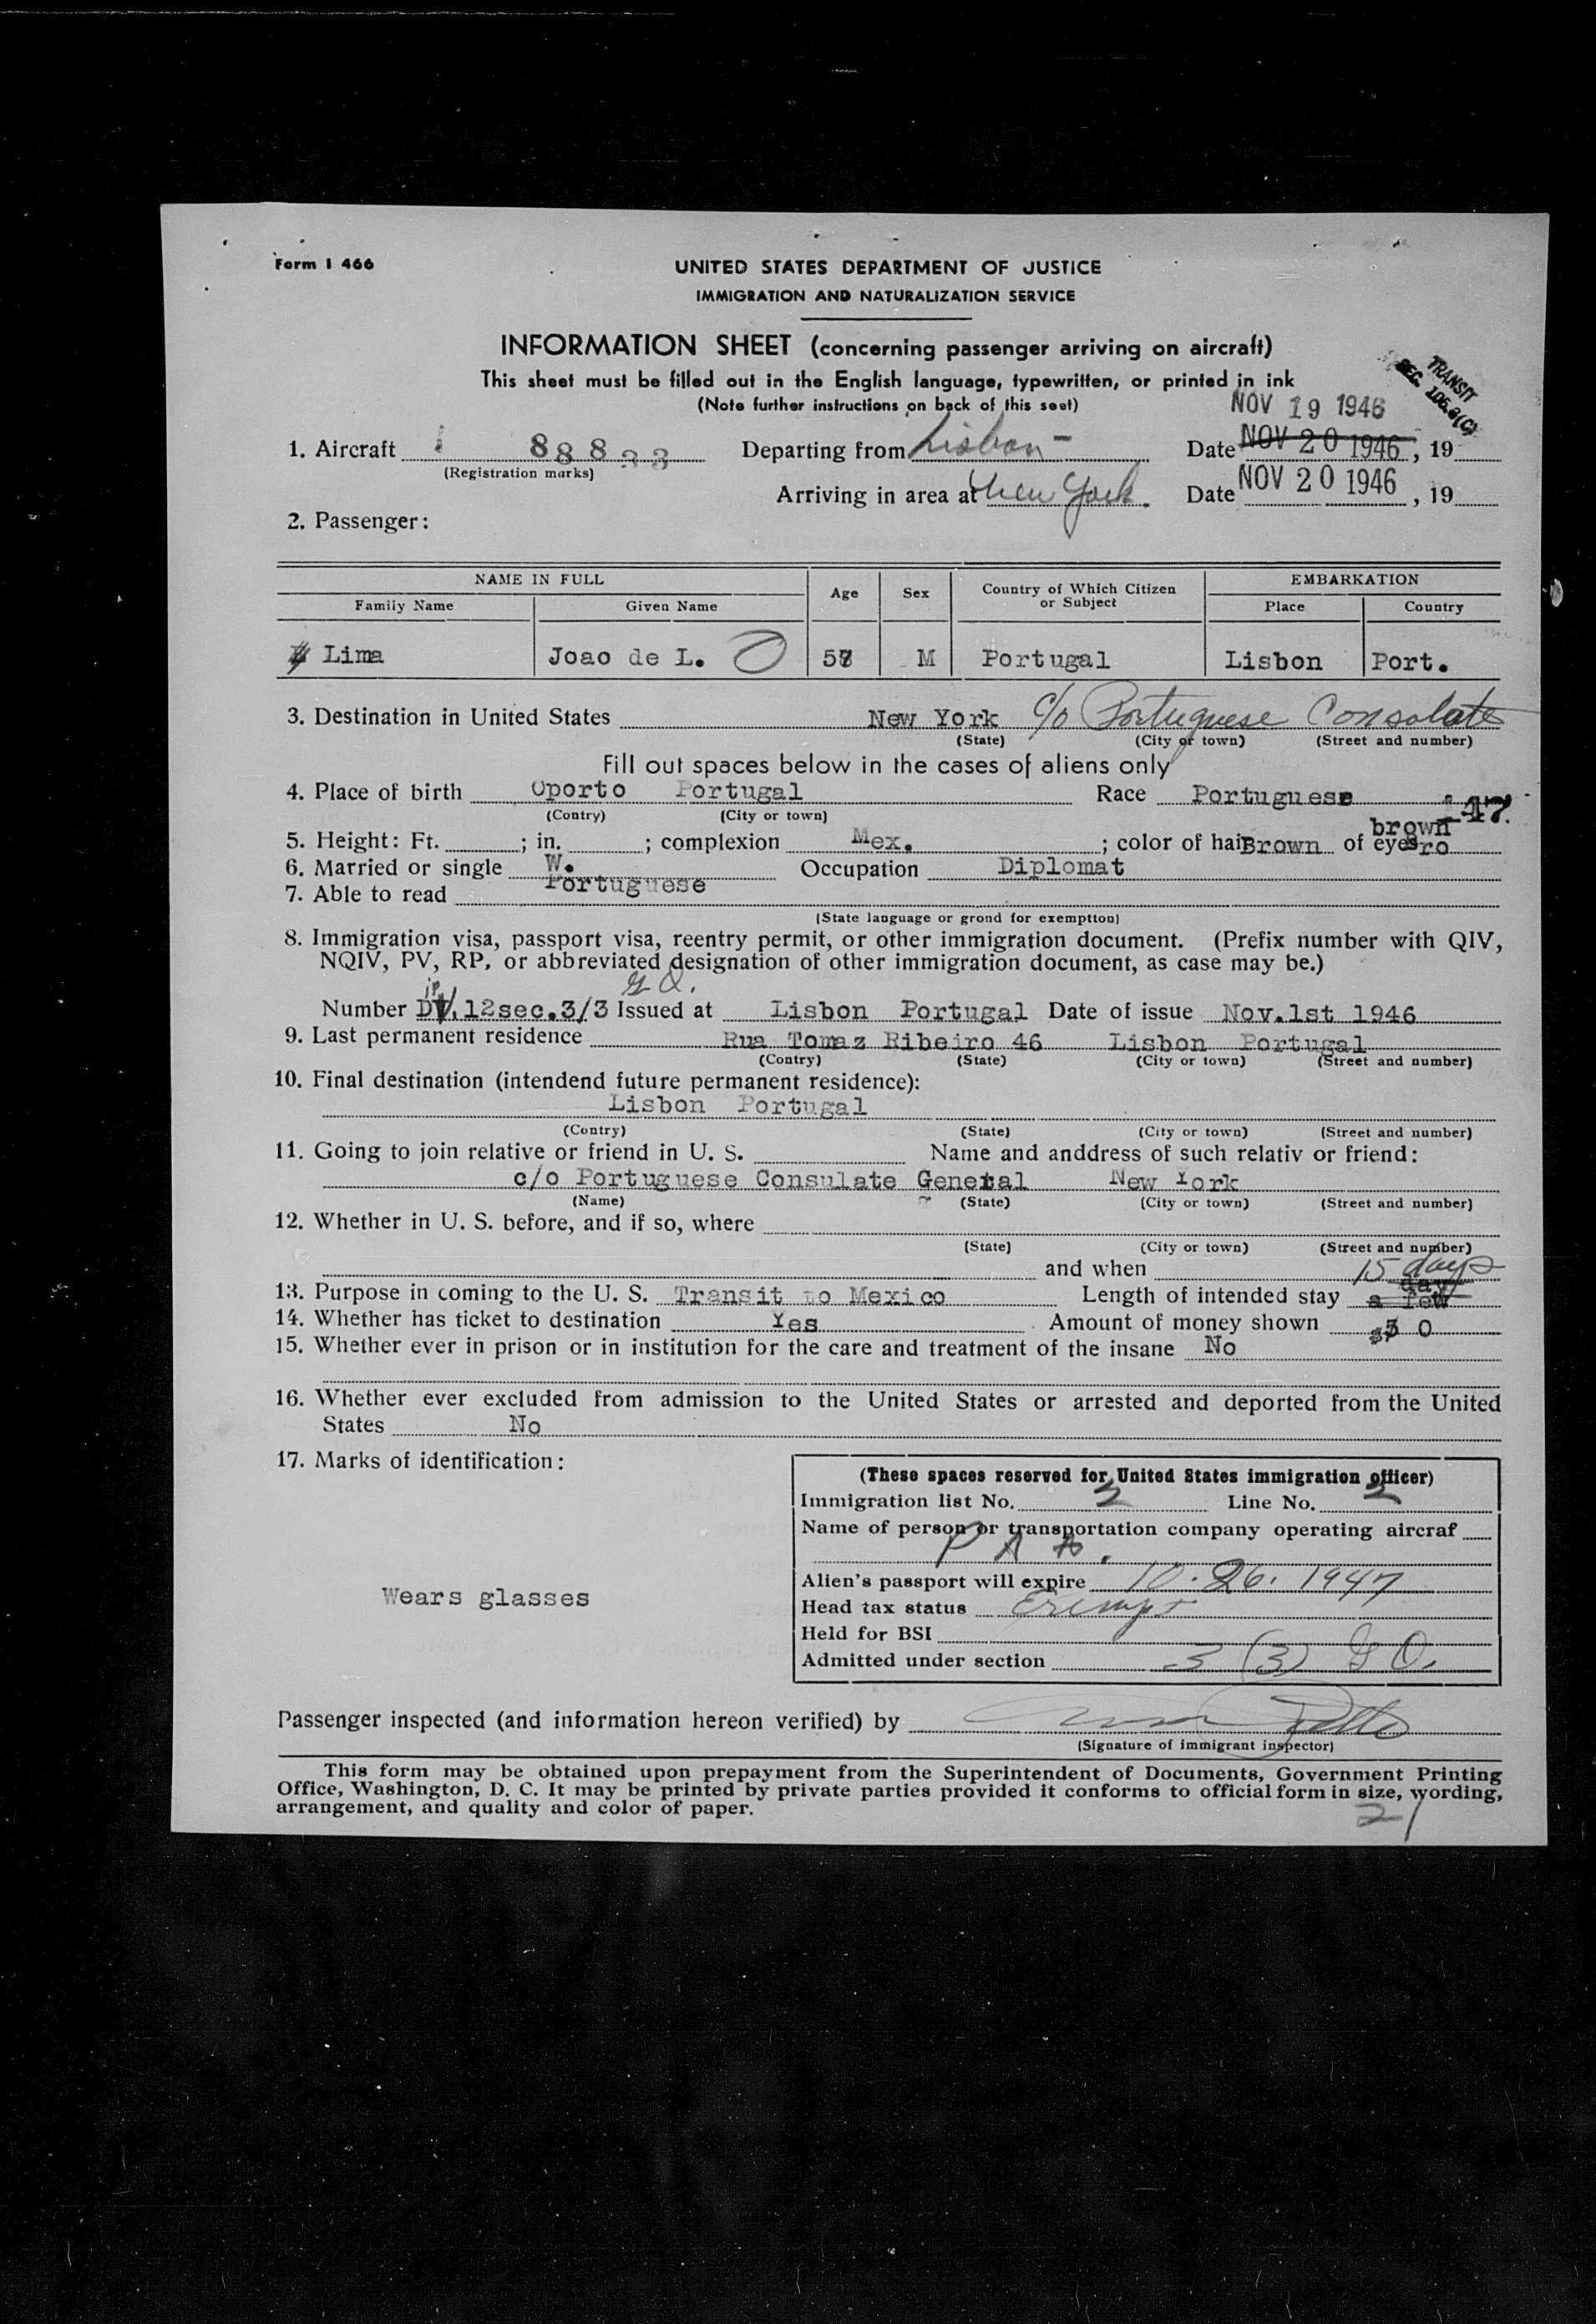 Form I 466
UNITED STATES DEPARTMENT OF JUSTICE
IMMIGRATION AND NATURALIZATION SERVICE
INFORMATION SHEET (concerning passenger arriving on aircraft)
This sheet must be filled out in the English language, typewritten, or printed in ink
(Note further instructions on back of this seet)
TRANSIT
SEC. 105.3(C)
NOV 19 1946
1. Aircraft 88833 Departing from Lisbon - Date NOV 20 1946, 19
(Registration marks)
Arriving in area at New York. Date NOV 20 1946, 19
2. Passenger:
NAME IN FULL Age Sex Country of Which Citizen or Subject EMBARKATION
Family Name Given Name Place Country
Lima Joao de L. M Portugal Lisbon Port.
3. Destination in United States New York c/o Portuguese Consolate
(State) (City or town) (Street and number)
Fill out spaces below in the cases of aliens only
4. Place of birth Oporto Portugal Race Portuguese
(Contry) (City or town)
47.
brown
5. Height: Ft. ; in. ; complexion Mex. ; color of hair Brown of eyes Bro
6. Married or single W. Occupation Diplomat
7. Able to read Portuguese
(State language or grond for exemptton)
8. Immigration visa, passport visa, reentry permit, or other immigration document. (Prefix number with QIV,
NQIV, PV, RP, or abbreviated designation of other immigration document, as case may be.)
Number 12sec.3/3 Issued at Lisbon Portugal Date of issue Nov.1st 1946
9. Last permanent residence Rua Tomaz Ribeiro 46 Lisbon Portugal
(Contry) (State) (City or town) (Street and number)
10. Final destination (intendend future permanent residence):
Lisbon Portugal
(Contry) (State) (City or town) (Street and number)
11. Going to join relative or friend in U. S. Name and anddress of such relativ or friend:
c/o Portuguese Consulate General New York
(Name) (State) (City or town) (Street and number)
12. Whether in U. S. before, and if so, where
(State) (City or town) (Street and number)
and when
15 days
13. Purpose in coming to the U. S. Transit to Mexico Length of intended stay a few day
14. Whether has ticket to destination Yes Amount of money shown $30
15. Whether ever in prison or in institution for the care and treatment of the insane No
16. Whether ever excluded from admission to the United States or arrested and deported from the United
States No
17. Marks of identification:
Wears glasses
(These spaces reserved for United States immigration officer)
Immigration list No. 2 Line No. 2
Name of person or transportation company operating aircraf
P A A.
Alien's passport will expire 10. 26. 1947
Head tax status Exempt
Held for BSI
Admitted under section 3 (3) G O.
Passenger inspected (and information hereon verified) by
(Signature of immigrant inspector)
This form may be obtained upon prepayment from the Superintendent of Documents, Government Printing
Office, Washington, D. C. It may be printed by private parties provided it conforms to official form in size, wording,
arrangement, and quality and color of paper.
21